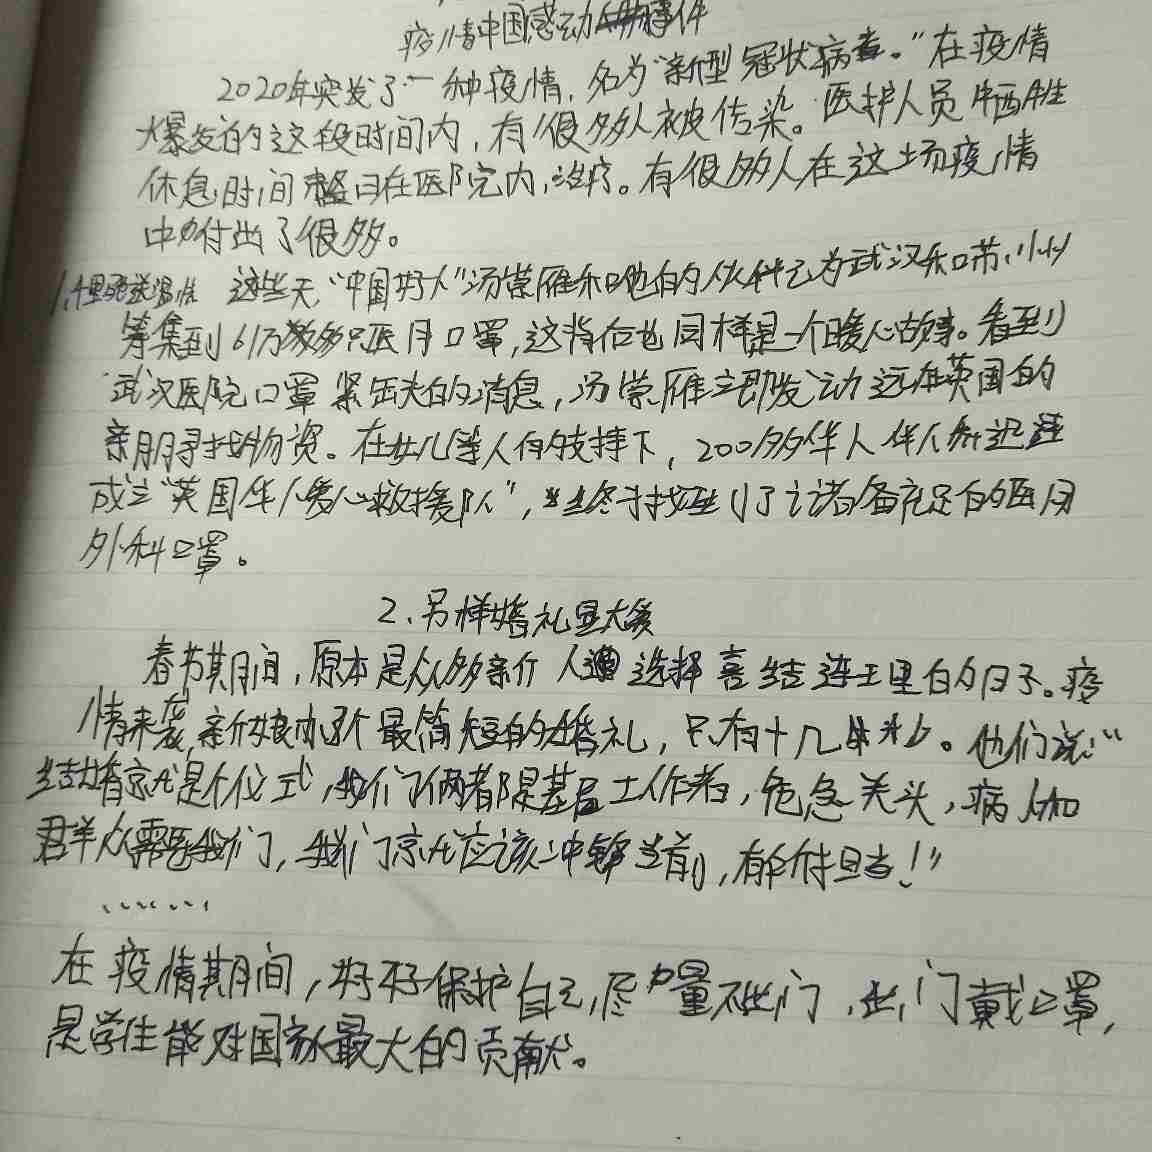 疫情中国感动事件
2020年突发了一种疫情，名为“新型冠状病毒。”在疫情
大爆发的这段时间内，有很多人被传染。医护人员牺牲
休息时间整日在医院内治疗。有很多人在这场疫情
中付出了很多。
1.千里驰送温情 这些天，“中国好人”汤崇雁和他的伙伴已为武汉和苏州
筹集到61万多只医用口罩，这背后也同样是一个暖心故事。看到
武汉医院口罩紧缺的消息，汤崇雁立即发动远在英国的
亲朋寻找物资。在女儿等人的支持下，200多华人迅速
成立“英国华人爱心救援队”，终于找到了诸备充足的医用
外科口罩。
2.另样婚礼显大爱
春节期间，原本是众多新人选择喜结连理的日子。疫
情来袭，新娘办了个最简短的婚礼，只有十几。他们说：“
结婚就是个仪式，我们俩都是基层工作者，危急关头，病人和
群众需要我们，我们就应该冲锋当前，有所担当！”
……
在疫情期间，好好保护自己，尽力量不出门，出门戴口罩，
是学生能对国家最大的贡献。